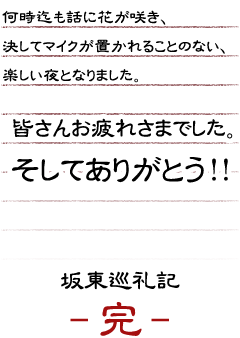 何時迄も話に花が咲き、
決してマイクが置かれることのない、
楽しい夜となりました。
皆さんお疲れさまでした。
そしてありがとう!!
坂東巡礼記
－完－